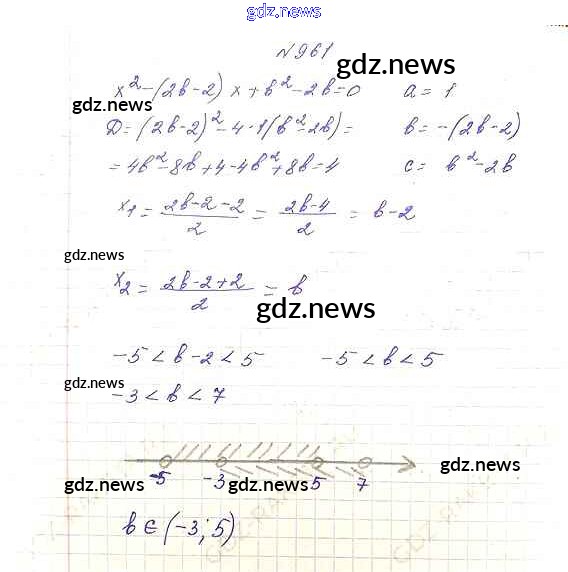 gdz.news
№961
gdz.news
x²-(2b-2)x+b²-2b=0 a=1
gdz.news
D=(2b-2)²-4·1(b²-2b)= b=-(2b-2)
=4b²-8b+4-4b²+8b=4 c= b²-2b
x₁=(2b-2-2)/2=(2b-4)/2=b-2
gdz.news
x₂=(2b-2+2)/2=b
gdz.news
-5<b-2<5 -5<b<5
gdz.news
-3<b<7
gdz.news
-5 -3 5 7
gdz.news gdz.news gdz.news
b∈(-3;5)